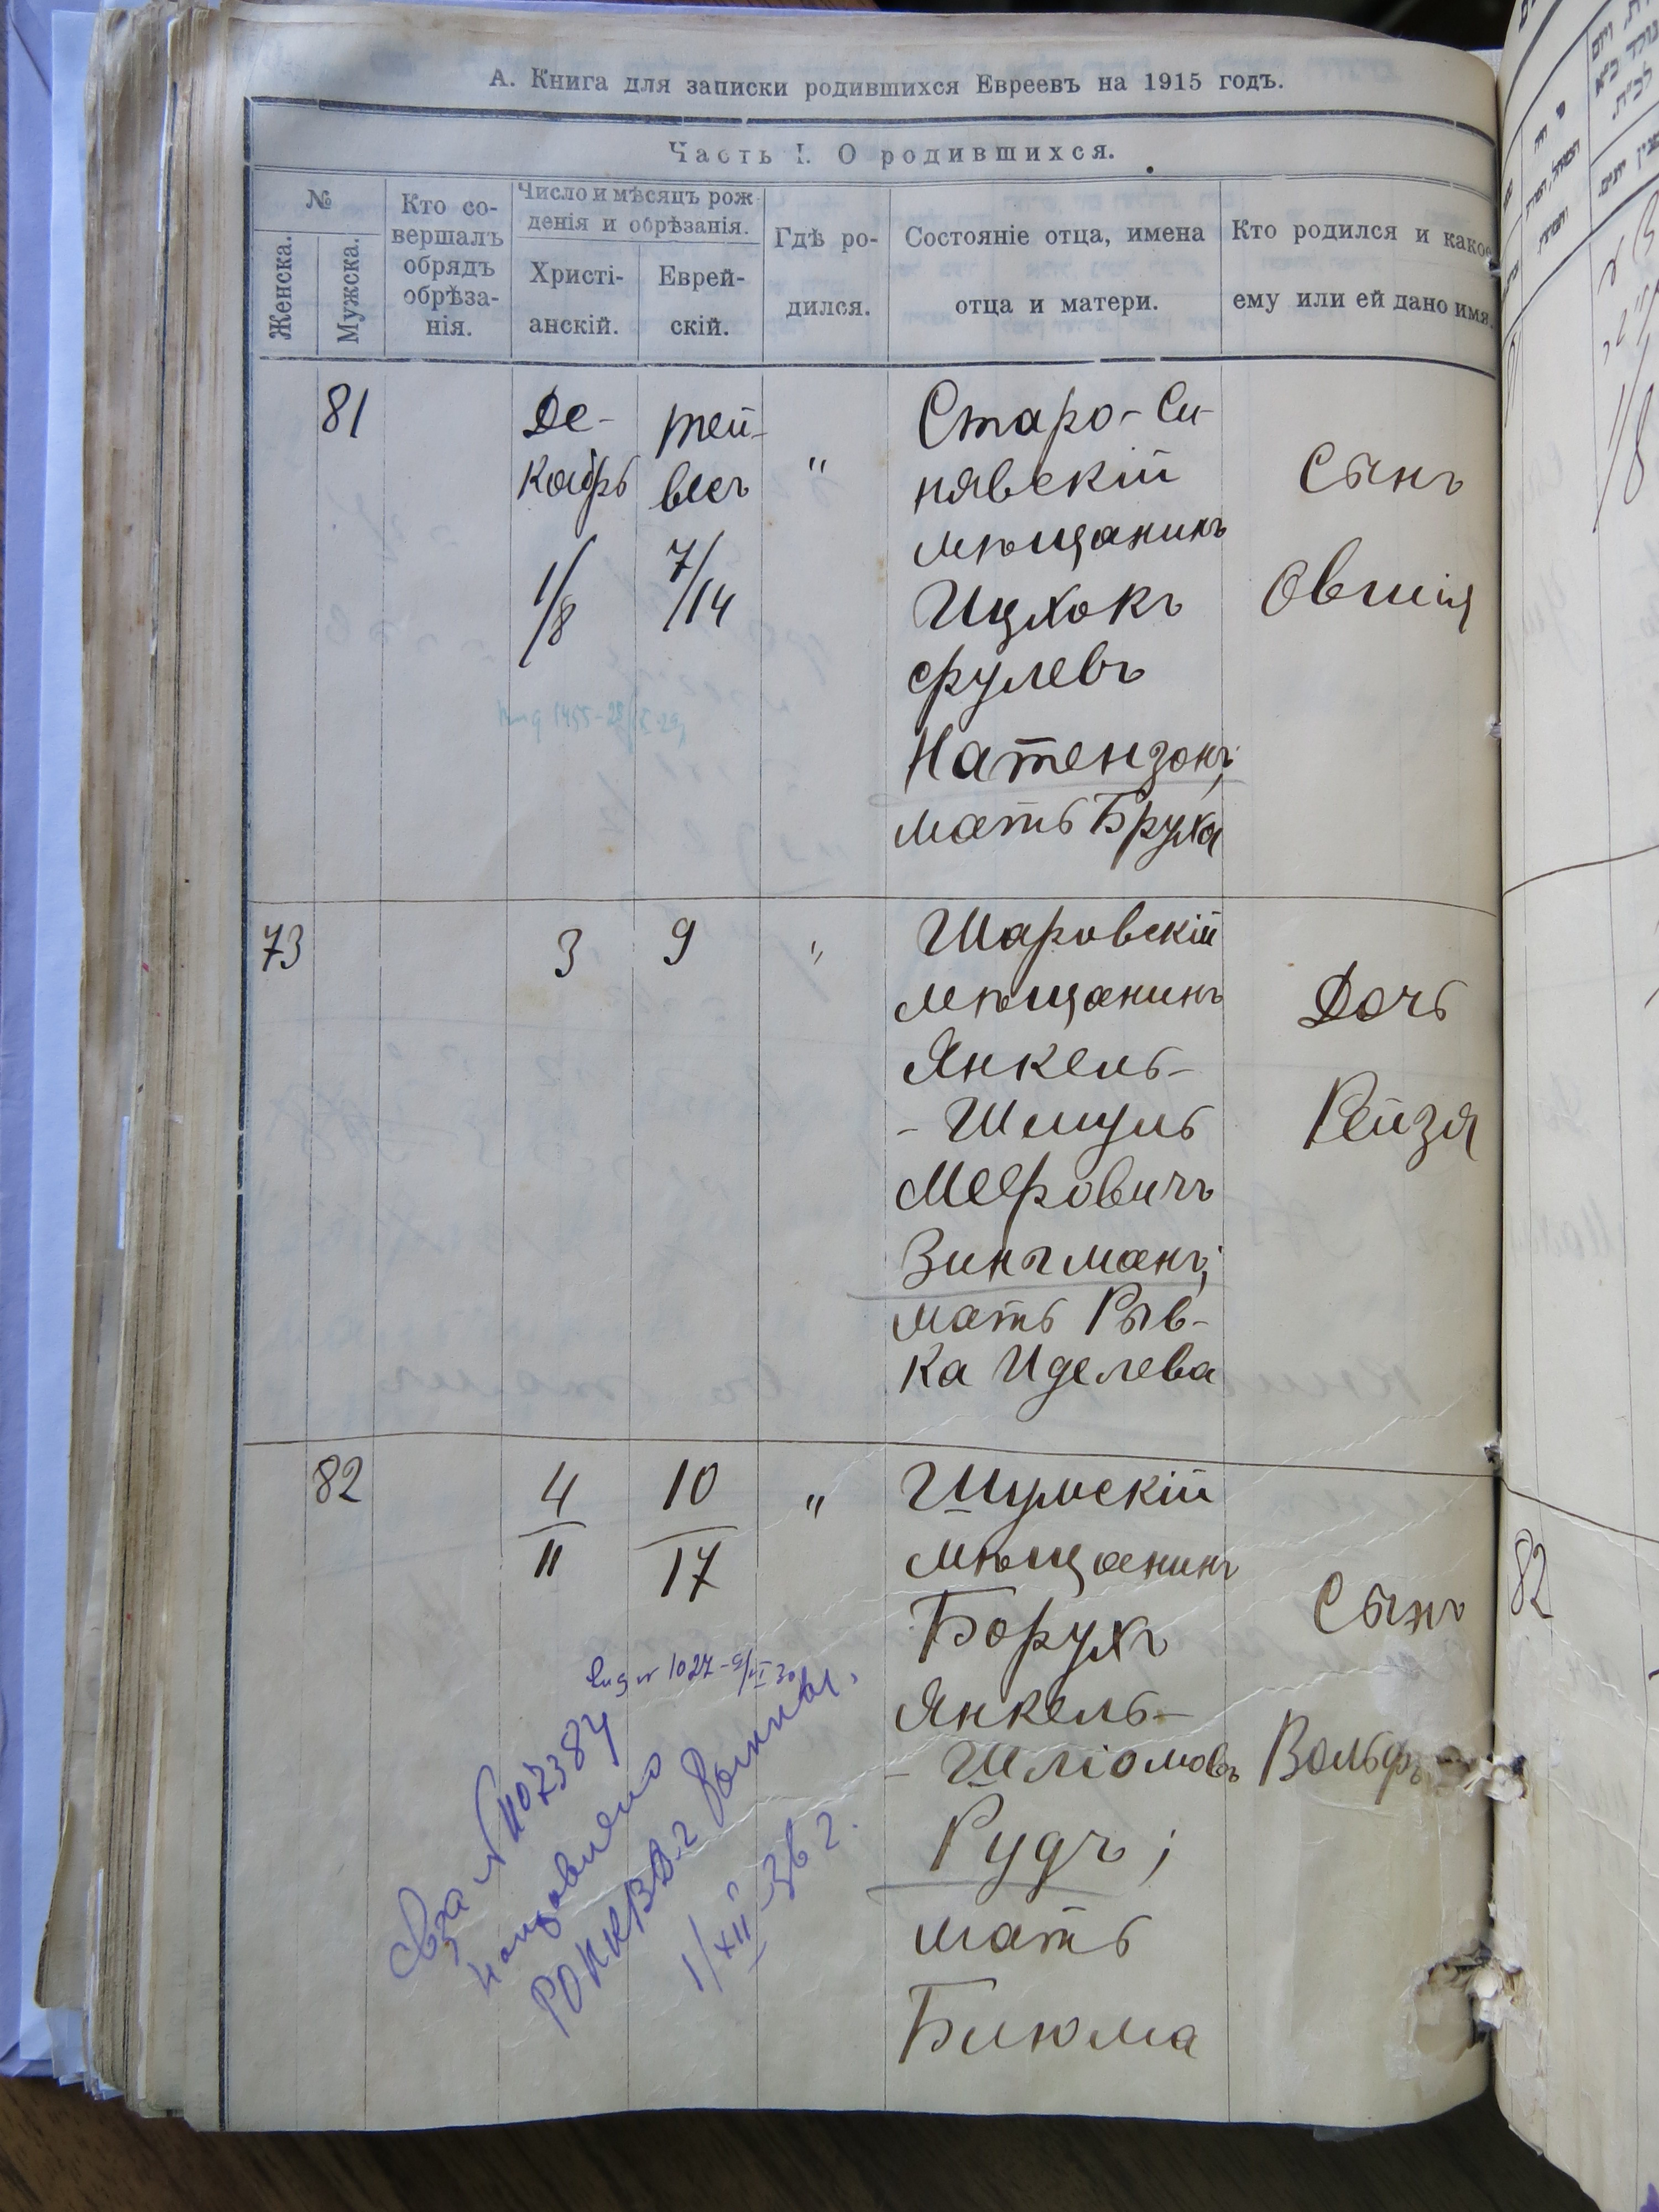 А. Книга для записки родившихся Евреевъ на 1915 годъ.
Часть I. О родившихся.
№
Женска.
Мужска.
Кто со-
вершалъ
обрядъ
обрѣза-
нія.
Число и мѣсяцъ рож
денія и обрѣзанія.
Христі-
анскій.
Еврей-
скій.
Гдѣ ро-
дился.
Состояніе отца, имена
отца и матери.
Кто родился и какое
ему или ей дано имя.
81
Де-
кабрь
1/8
тей-
весъ
7/14
"
Старо-Си-
нявскій
мѣщанинъ
Ицхокъ
Срулевъ
Натензонъ;
мать Бруха
Сынъ
Овшія
73
3
9
"
Шаровскій
мѣщанинъ
Янкель-
- Шмуль
Меровичъ
Зингманъ;
мать Рыв-
ка Иделева
Дочь
Рейзя
82
4
11
10
17
"
Шумскій
мѣщанинъ
Борухъ
Янкель-
- Шліомовъ
Рудъ;
мать
Блюма
Сынъ
Вольфъ
направлено
1/XII-36 г.
82